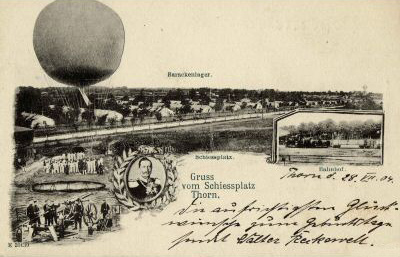 Barackenlager.
Schiessplatz.
Bahnhof.
Gruss
vom Schiessplatz
Thorn.
Thorn d. 28. VII. 04
Die aufrichtigsten Glück-
wünsche zum Geburtstage
sendet Walter